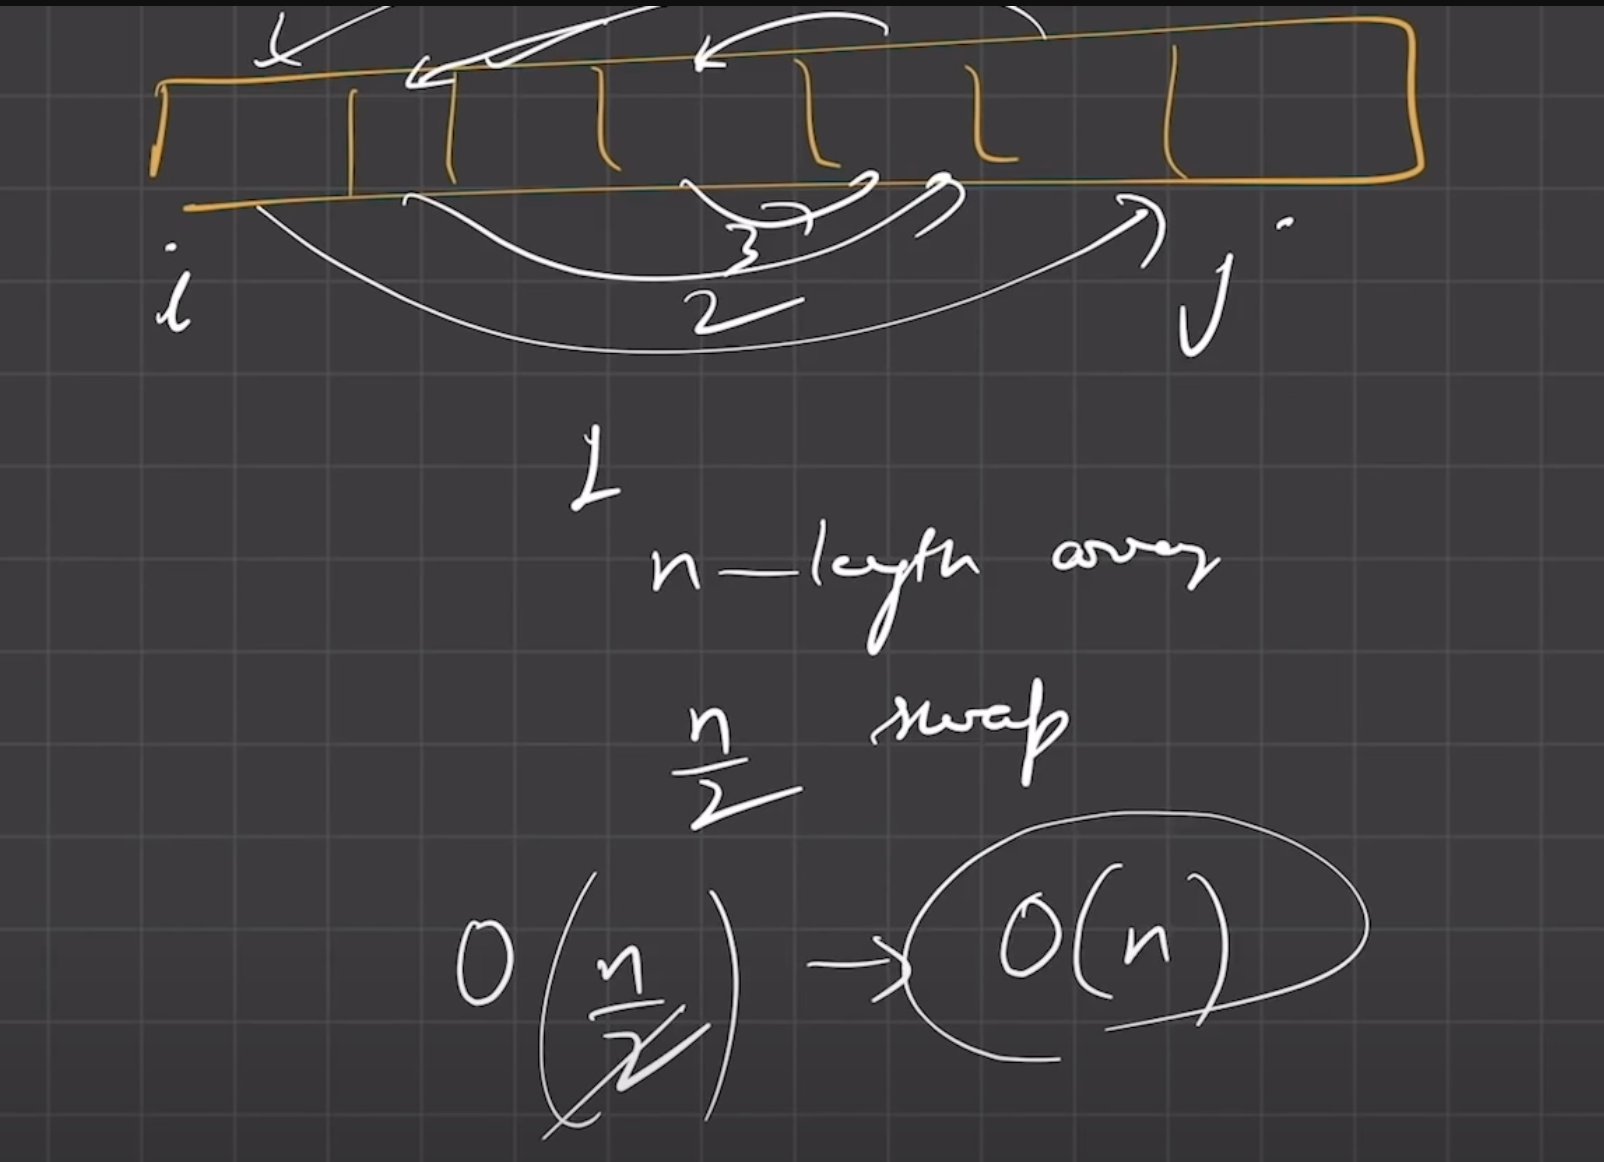 3
i 2 j
1
n-length array
n/2 swap
O(n/2) → O(n)